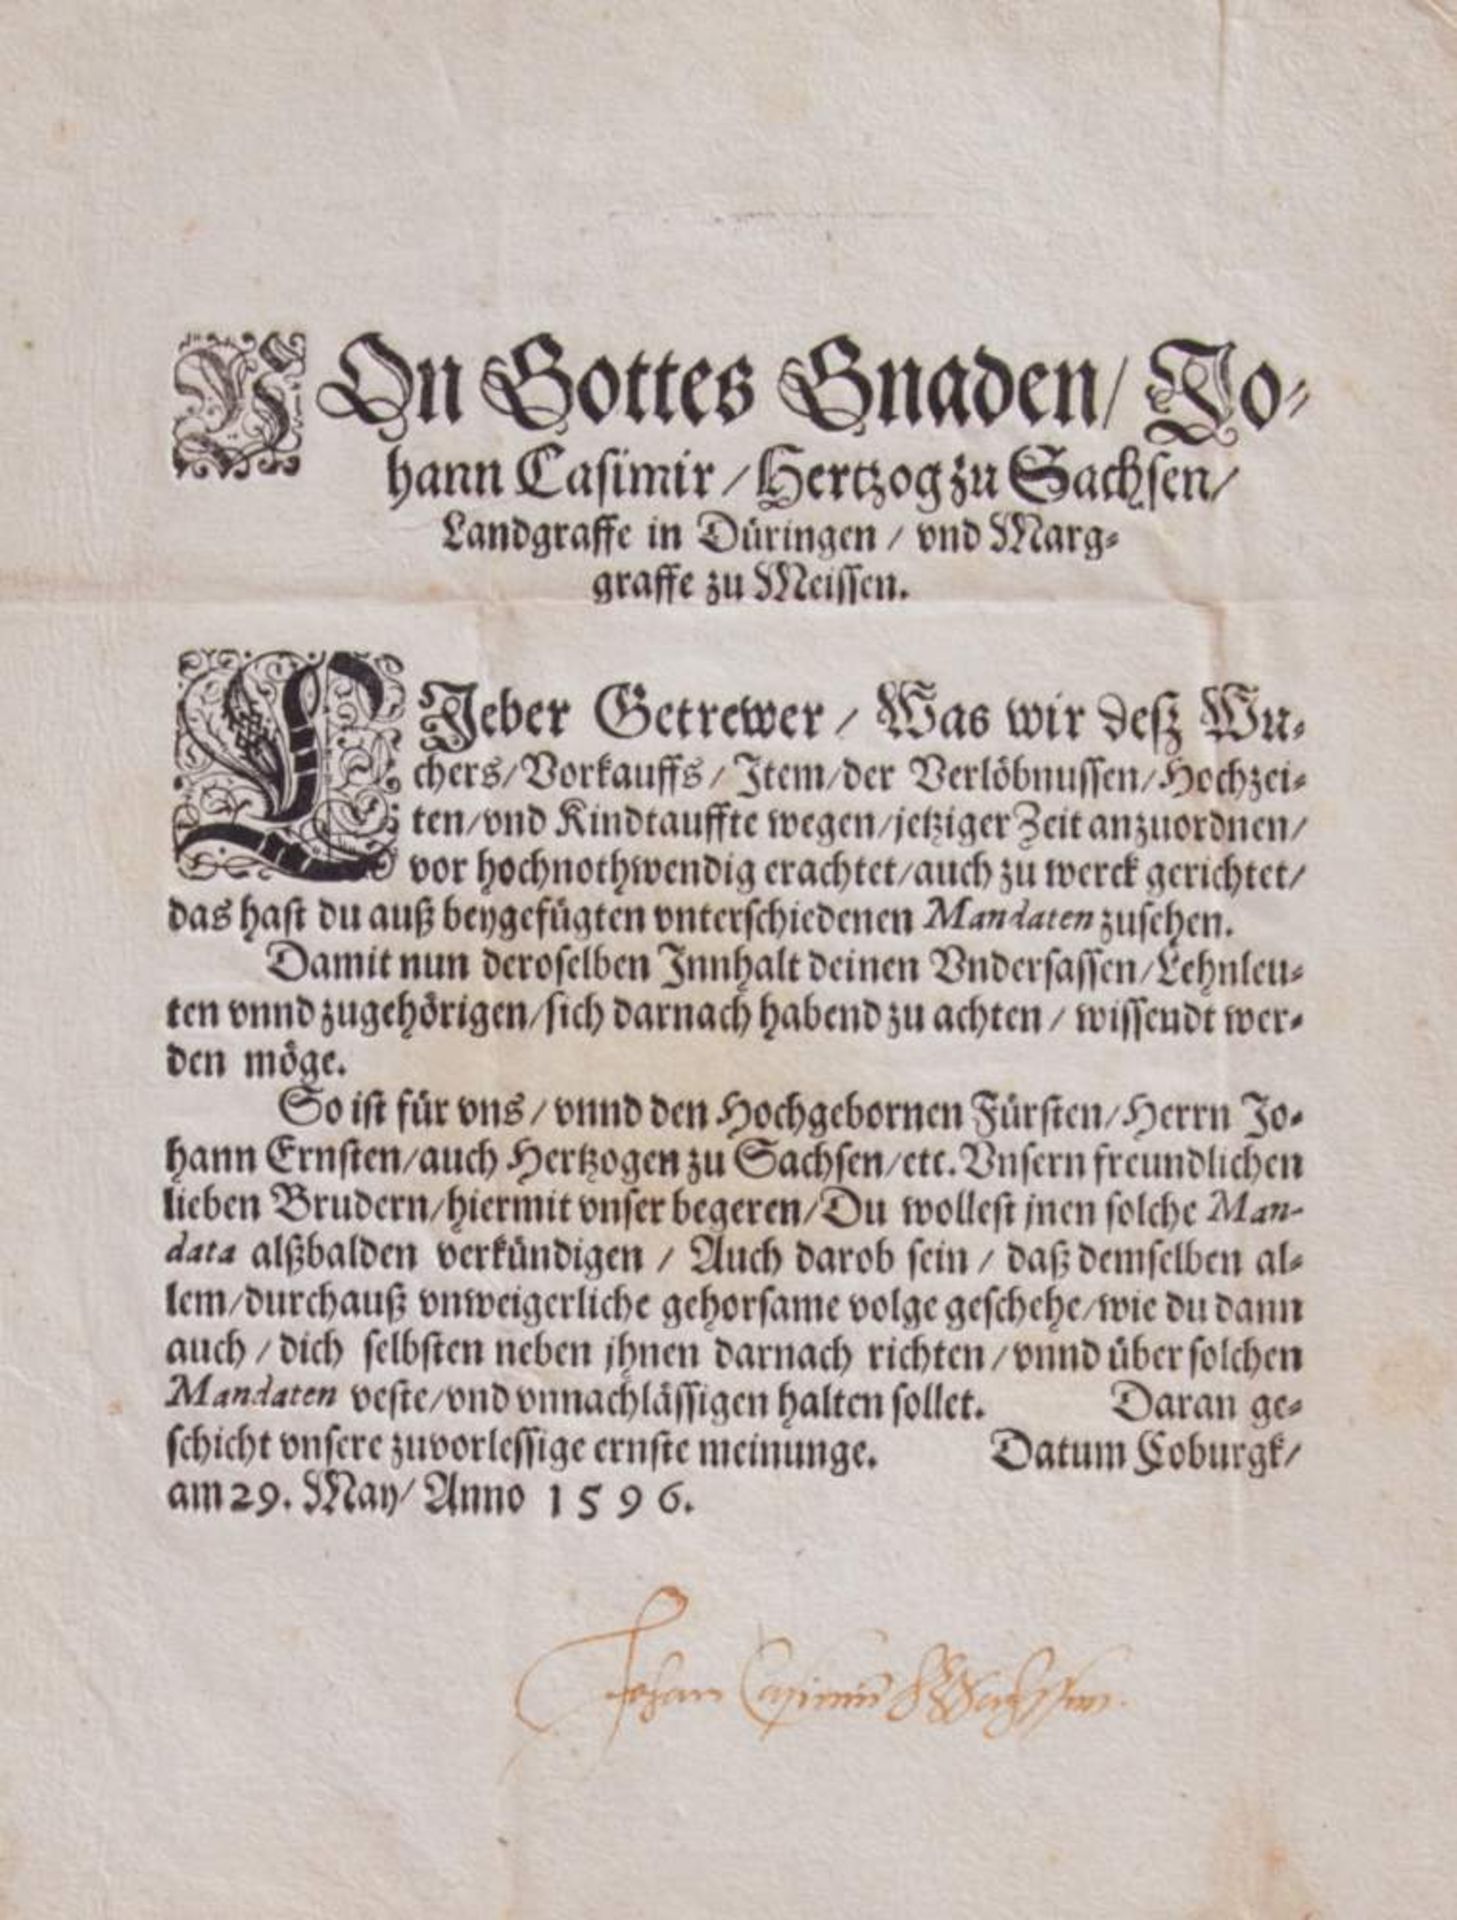 VOn Gottes Gnaden/ Jo-
hann Casimir / Hertzog zu Sachsen/
Landgraffe in Düringen / vnd Marg-
graffe zu Meissen.
LJeber Getrewer / Was wir deß Wu-
chers/Vorkauffs / Jtem/der Verlöbnussen/Hochzei-
ten/vnd Kindtauffte wegen/jetziger Zeit anzuordnen/
vor hochnothwendig erachtet/auch zu werck gerichtet/
das hast du auß beygefügten vnterschiedenen Mandaten zusehen.
Damit nun deroselben Jnnhalt deinen Vndersassen/Lehnleu-
ten vnnd zugehörigen/sich darnach habend zu achten / wissendt wer-
den möge.
So ist für vns / vnnd den Hochgebornen Fürsten/Herrn Jo-
hann Ernsten/auch Hertzogen zu Sachsen/etc. Vnsern freundlichen
lieben Brudern/hiermit vnser begeren/Du wollest jnen solche Man-
data alßbalden verkündigen / Auch darob sein / daß demselben al-
lem/durchauß vnweigerliche gehorsame volge geschehe/wie du dann
auch / dich selbsten neben jhnen darnach richten / vnnd über solchen
Mandaten veste/vnd vnnachlässigen halten sollet. Daran ge-
schicht vnsere zuvorlessige ernste meinunge. Datum Coburgk/
am 29. May/ Anno 1596.
Johan Casimir H Z Sachssen